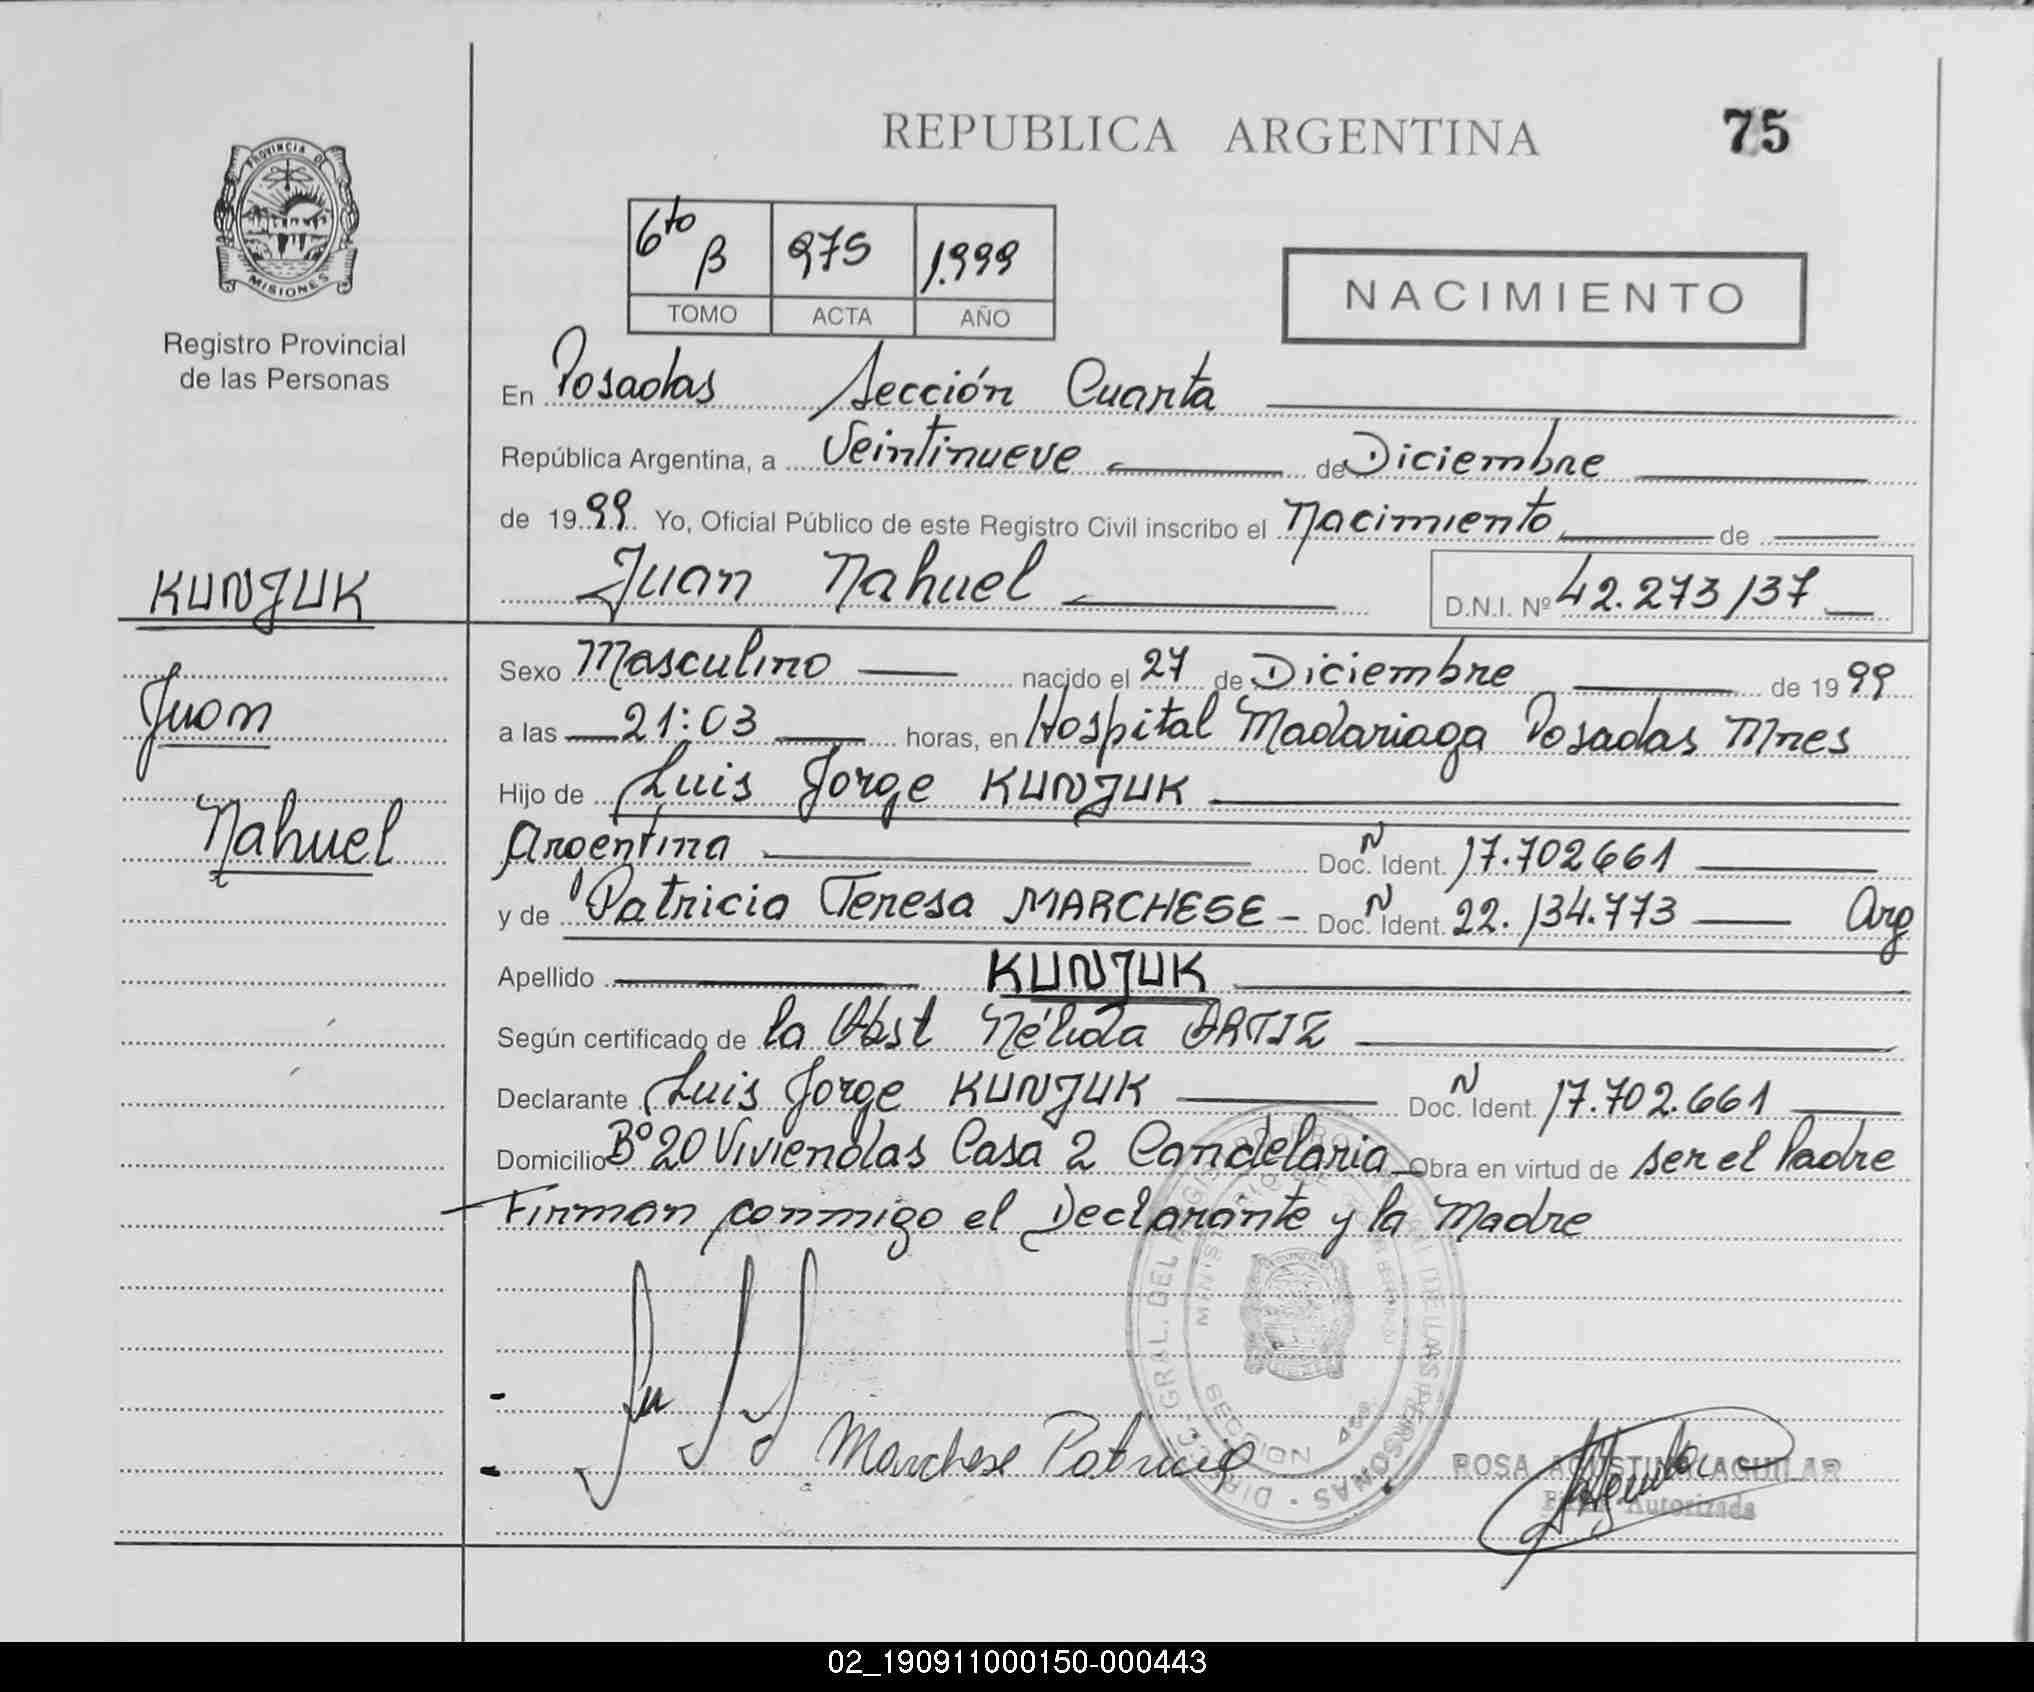 REPUBLICA ARGENTINA
75
PROVINCIA D
MISIONES
Registro Provincial
de las Personas
6to B 975 1.999
TOMO ACTA AÑO
NACIMIENTO
En Posadas Sección Cuarta
República Argentina, a Veintinueve de Diciembre
de 1999 Yo, Oficial Público de este Registro Civil inscribo el Nacimiento de
Juan Nahuel D.N.I. Nº 42.273137
KUNJUK
Juan
Nahuel
Sexo Masculino nacido el 27 de Diciembre de 1999
a las 21:03 horas, en Hospital Madariaga Posadas Mnes
Hijo de Luis Jorge KUNJUK
Argentina Doc. Ident. N 17.702661
y de Patricia Teresa MARCHESE - Doc. Ident. N 22.134.773 Arg
Apellido KUNJUK
Según certificado de la Obst Nélida ORTIZ
Declarante Luis Jorge KUNJUK Doc. Ident. N 17.702.661
Domicilio Bº 20 Viviendas Casa 2 Candelaria Obra en virtud de ser el Padre
Firman conmigo el Declarante y la Madre
Marchese Patricia
ROSA AGUSTINA AGUILAR
Firma Autorizada
02_190911000150-000443